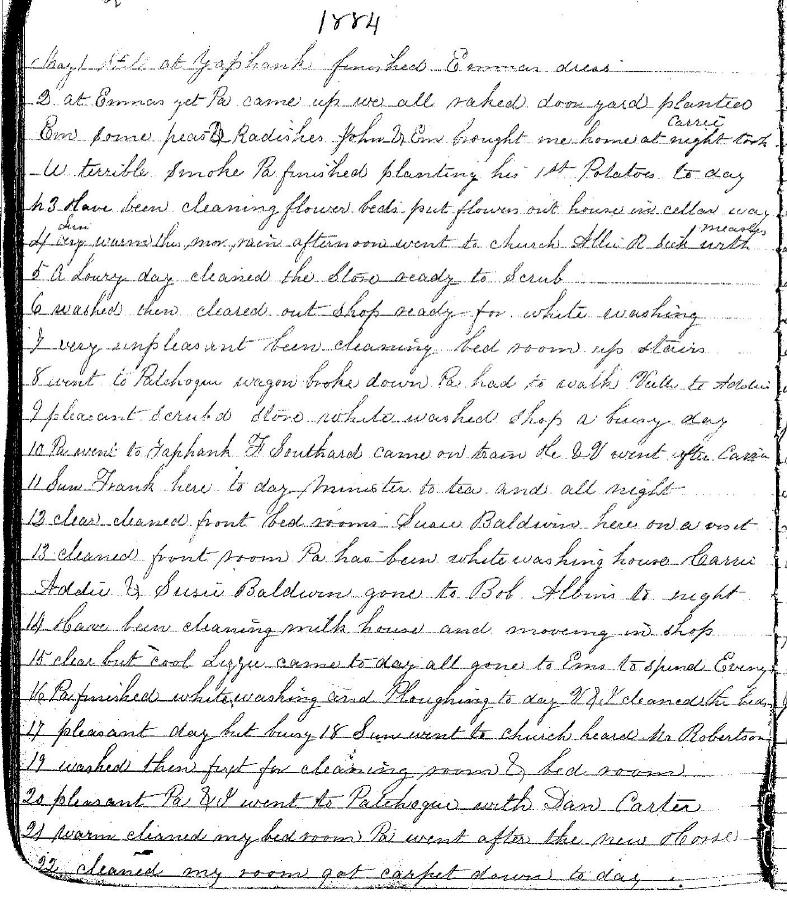 1884
May 1 at Yaphank finished Emmas dress
2 at Emmas yet Pa came up we all raked door yard planted
Em some peas & Radishes John & Em brought me home at night took Carrie
terrible smoke Pa finished planting his 1st Potatoes to day
3 Have been cleaning flower beds put flowers out house in cellar way
4 Sun very warm this mor, rain afternoon went to church Allie R sick with measles
5 A Lowry day cleaned the Store ready to Scrub
6 washed then cleared out shop ready for white washing
7 very unpleasant been cleaning bed room up stairs
8 went to Patchogue wagon broke down Pa had to walk to Addie
9 pleasant scrubd store white washed shop a busy day
10 Pa went to Yaphank F Southard came on train He & I went after Carrie
11 Sun Frank here to day Minister to tea and all night
12 clear cleaned front bed rooms Susie Baldwin here on a visit
13 cleaned front room Pa has been white washing house Carrie
Addie & Susie Baldwin gone to Bob Albins to night
14 Have been cleaning milk house and moveing in shop
15 clear but cool Lizzie came to day all gone to Ems to spend Eveng
16 Pa finished white washing and Ploughing to day V & I cleaned the beds
17 pleasant day but busy 18 Sun went to church heard Mr Robertson
19 washed then fixt for cleaning room & bed room
20 pleasant Pa & I went to Patchogue with Dan Carter
21 warm cleaned my bed room Pa went after the new Horse
22 cleaned my room got carpet down to day.